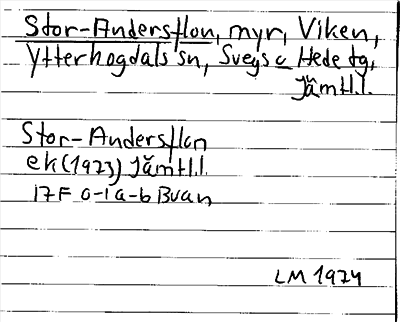 Stor-Andersflon, myr, Viken,
Ytterhogdals sn, Svegs o Hede tg,
Jämtl.l.
Stor-Andersflon
ek(1973) Jämtl.l.
17F 0-1a-b Buan
LM 1974